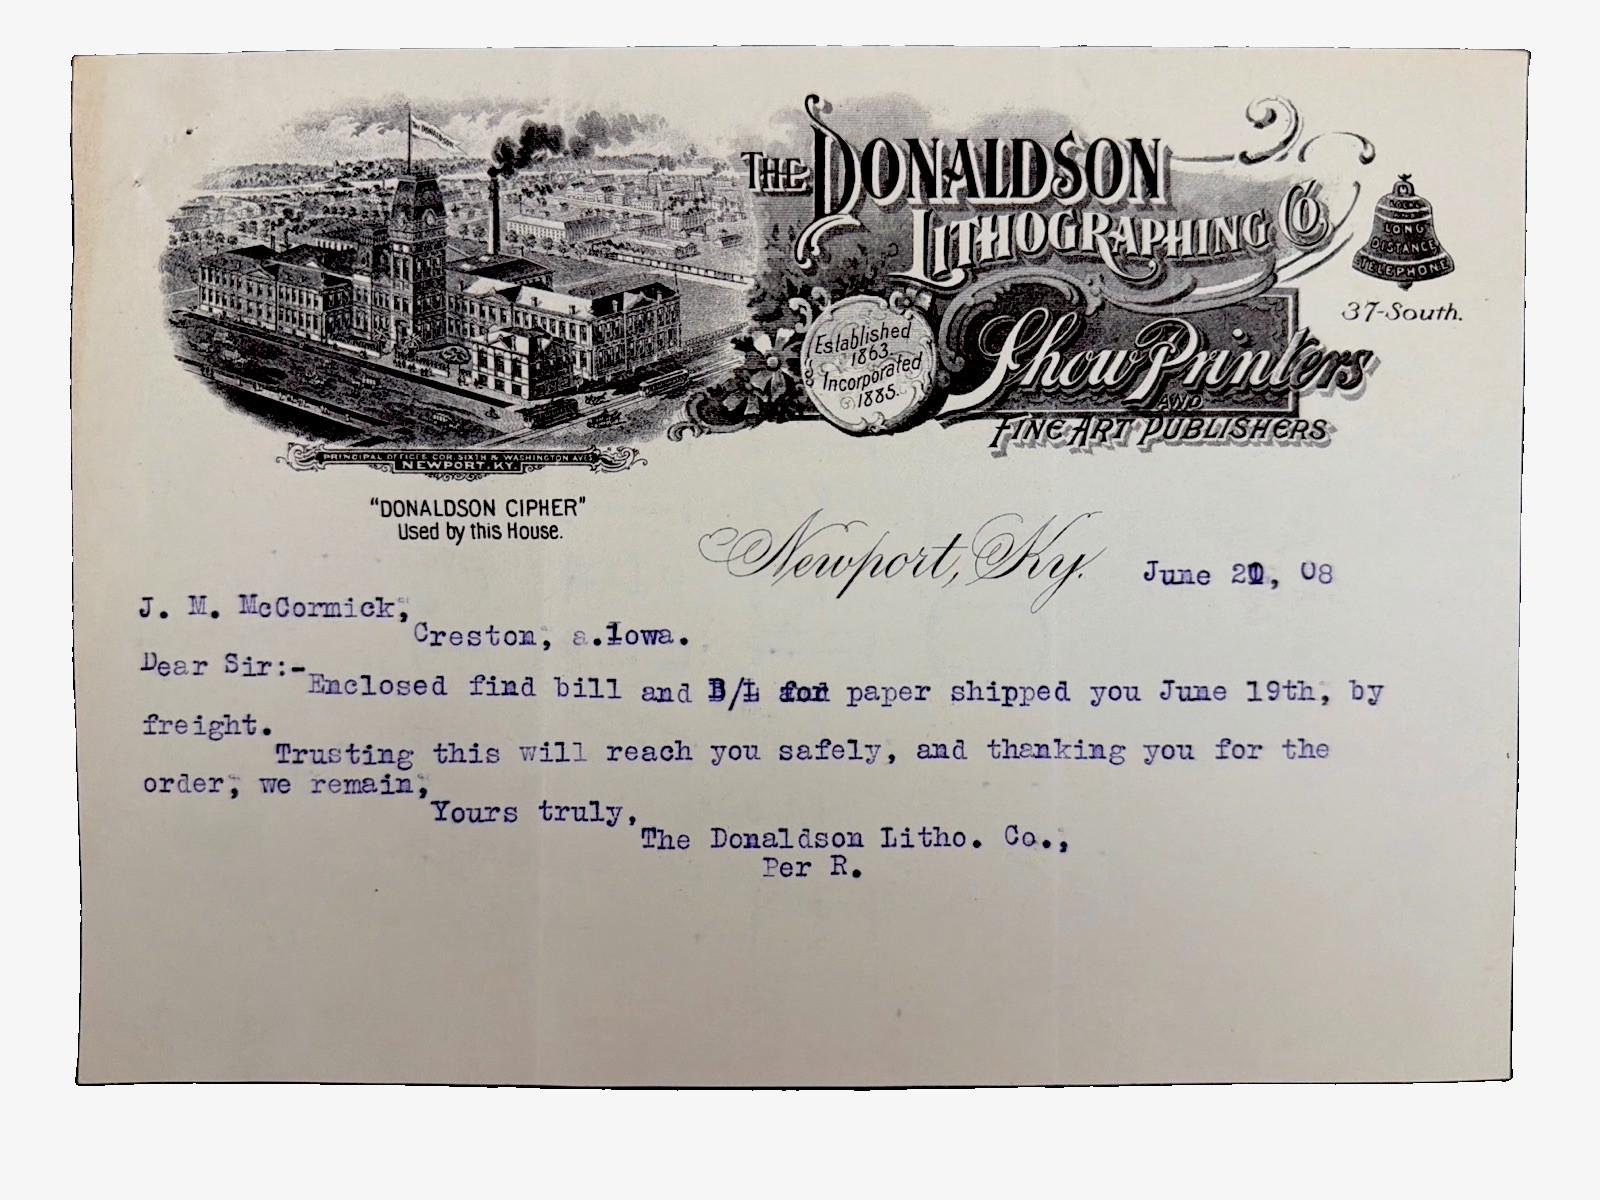 THE DONALDSON
LITHOGRAPHING CO.
LOCAL
AND
LONG
DISTANCE
TELEPHONE
37-South.
Established
1863.
Incorporated
1885.
Show Printers
AND
FINE ART PUBLISHERS
THE DONALDSON
PRINCIPAL OFFICES COR. SIXTH & WASHINGTON AVES.
NEWPORT. KY.
"DONALDSON CIPHER"
Used by this House.
Newport, Ky. June 20, 08
J. M. McCormick,
Creston, a.Iowa.
Dear Sir:-
Enclosed find bill and B/L for paper shipped you June 19th, by
freight.
Trusting this will reach you safely, and thanking you for the
order, we remain,
Yours truly,
The Donaldson Litho. Co.,
Per R.